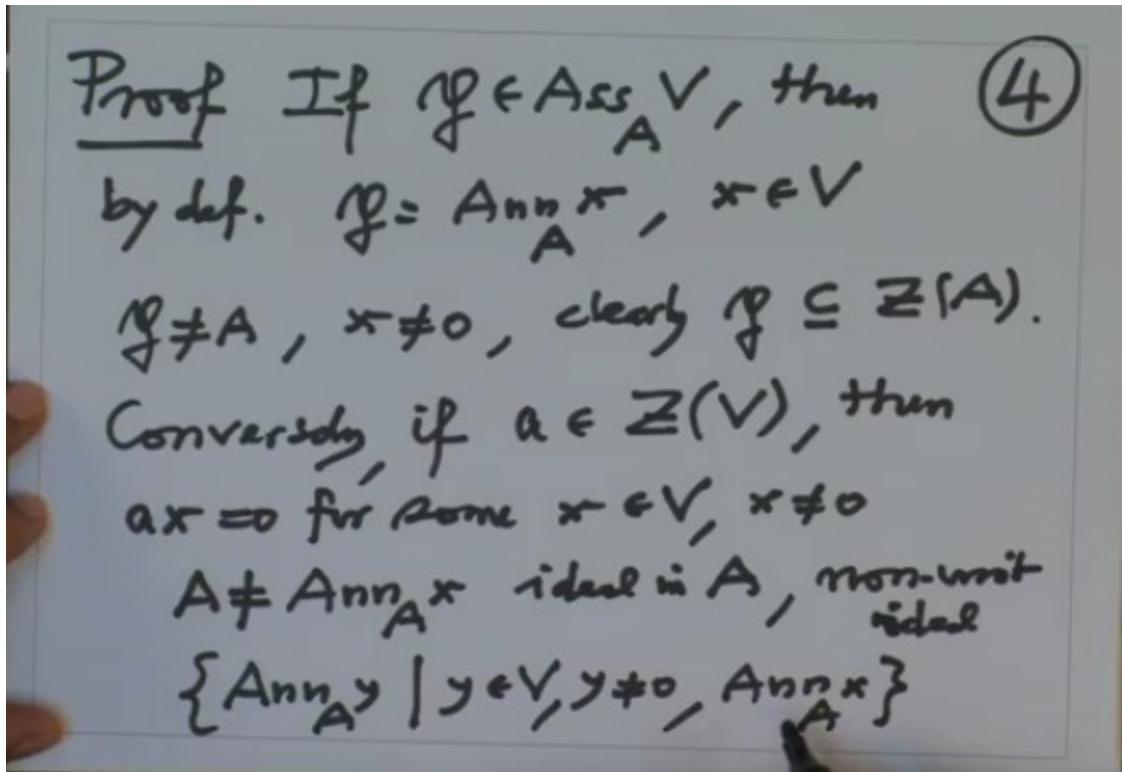 Proof If 𝔭 ∈ Ass_A V, then ④
by def. 𝔭 = Ann_A x, x ∈ V
𝔭 ≠ A, x ≠ 0, clearly 𝔭 ⊆ Z(A).
Conversely, if a ∈ Z(V), then
ax = 0 for some x ∈ V, x ≠ 0
A ≠ Ann_A x ideal in A, non-unit
ideal
{Ann_A y | y ∈ V, y ≠ 0, Ann_A x}